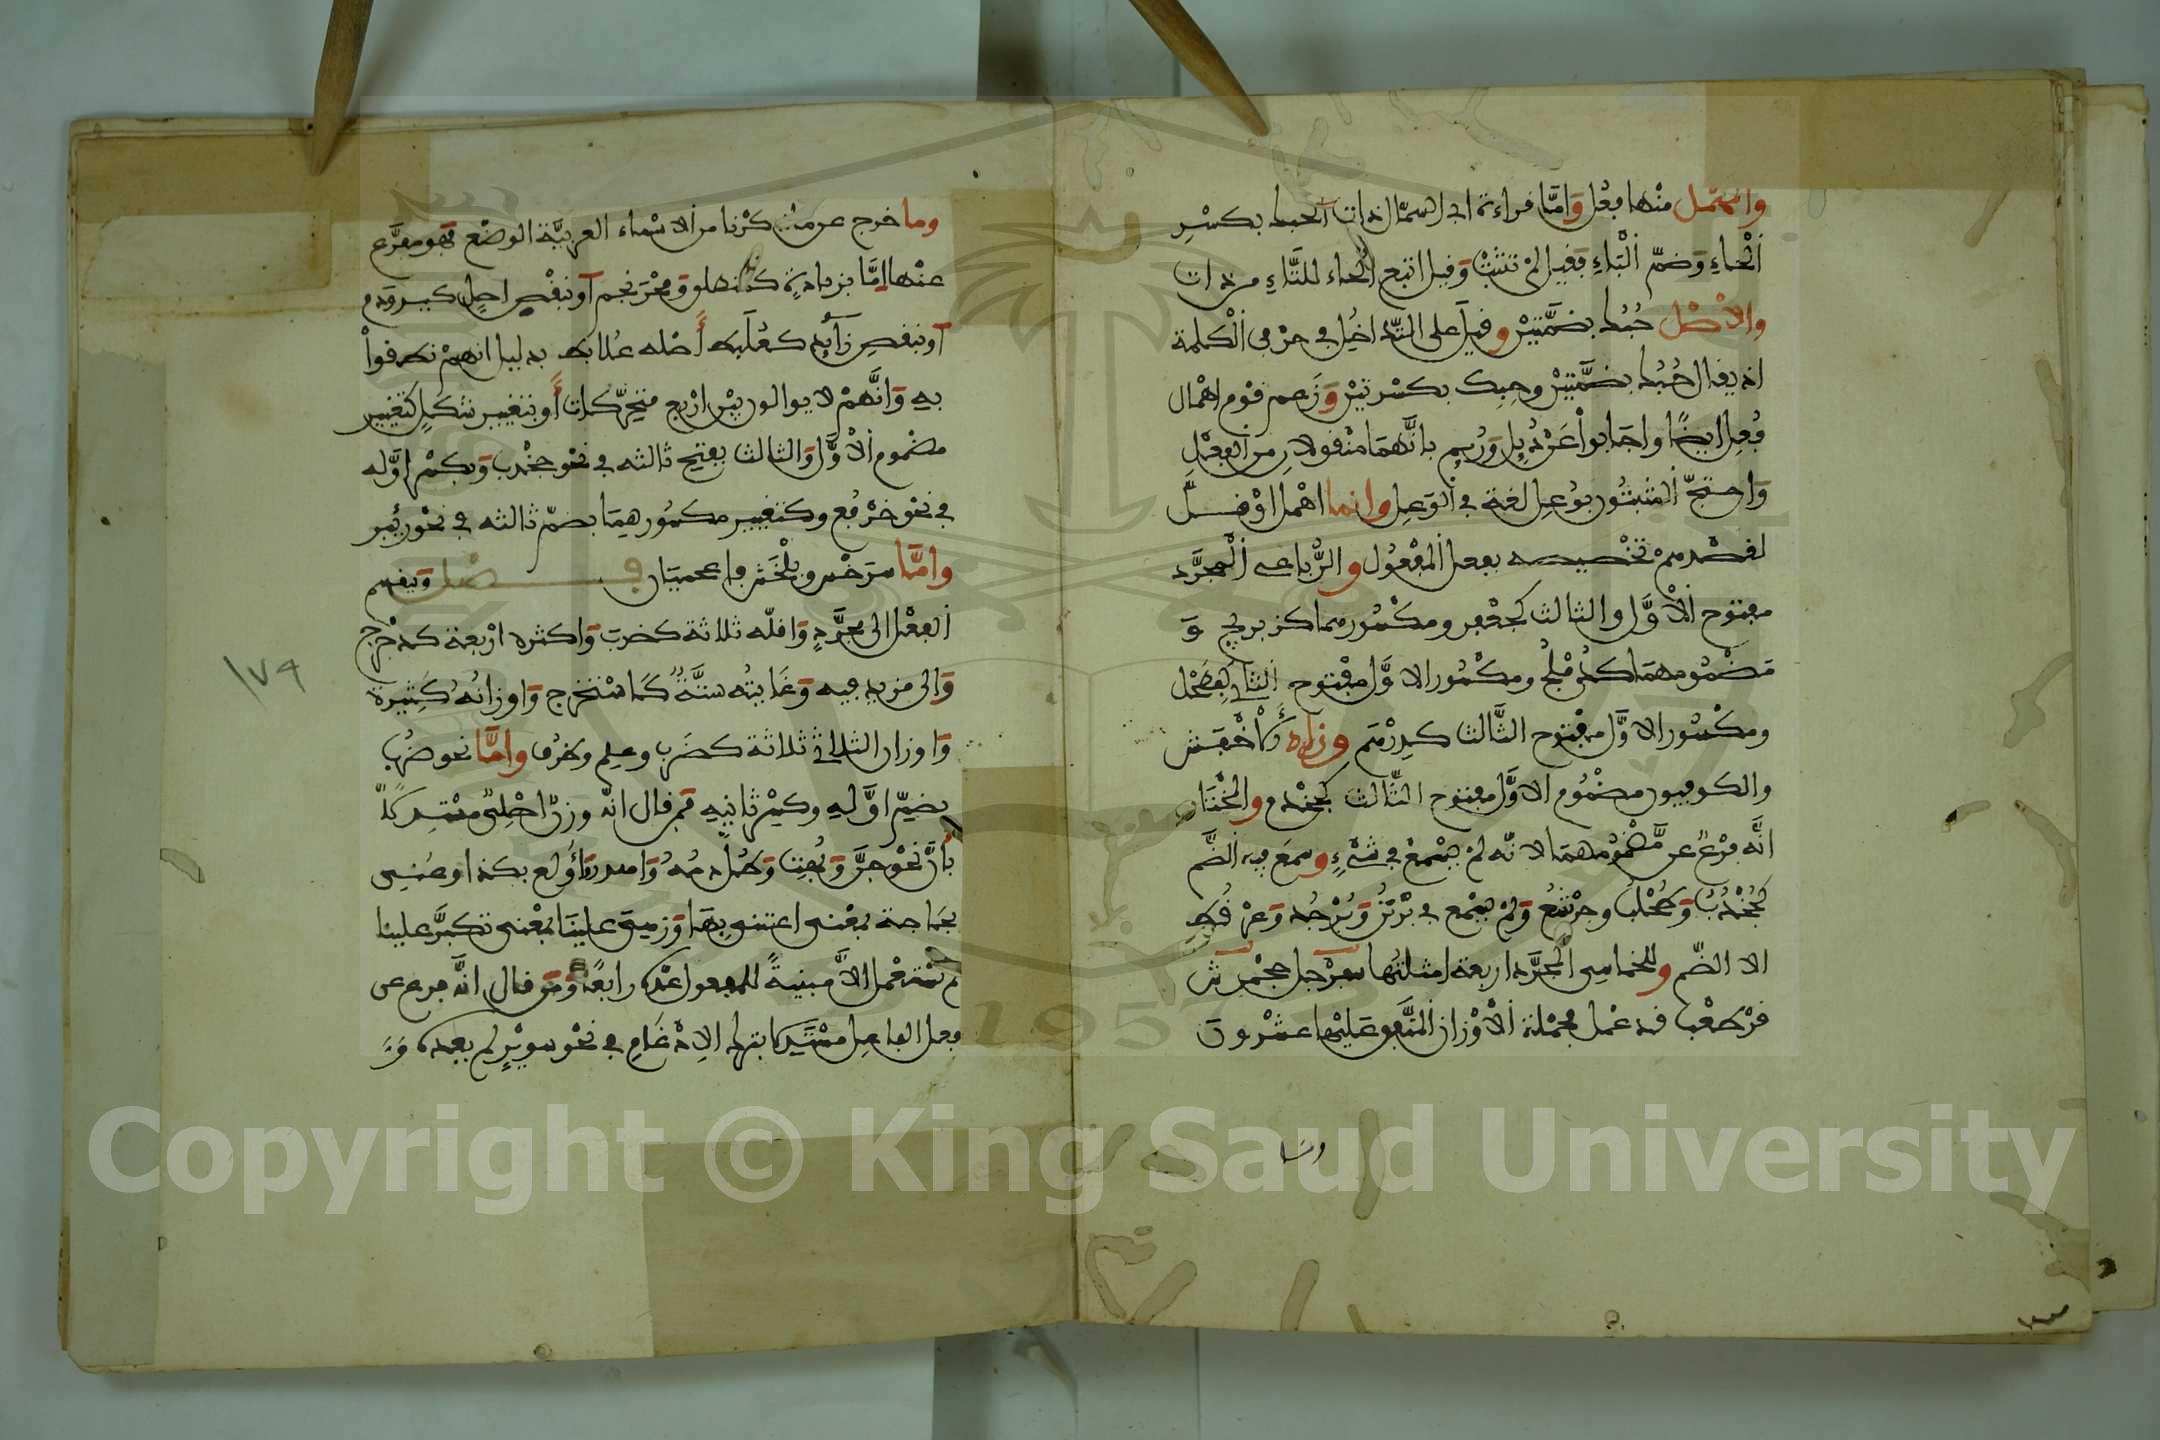 واهمل منها فعل وأما قراءة ابي السمال ذات الحبك بكسر
الحاء وضم الباء فقيل لم تثبت وقيل اتبع الحاء للتاء من ذات
والاصل حبك بضمتين وقيل على التداخل في حرفي الكلمة
اذ يقال حبك بضمتين وحبك بكسرتين وزعم قوم اهمال
فعل ايضا واجابوا عن دئل ورئم بانهما منقولان من الفعل
واحتج المثبتون بوعل لغة في الوعل وانما اهمل او قل
لقصدهم تخصيصه بفعل المفعول والرباعي المجرد
مفتوح الاول والثالث كجعفر ومكسورهما كزبرج و
مضمومهما كدملج ومكسور الاول مفتوح الثاني كفطحل
ومكسور الاول مفتوح الثالث كدرهم وزاد الاخفش
والكوفيون مضموم الاول مفتوح الثالث كجخدب والمختار
انه فرع عن مضمومهما لانه لم يسمع في شيء وسمع فيه الضم
كجخدب وطحلب وجرشع ولم يسمع في برثن وبرجد وعرفط
الا الضم وللخماسي المجرد اربعة امثلتها سفرجل جحمرش
قرطعب قذعمل فجملة الاوزان المتفق عليها عشرون
وما
وما خرج عن ما ذكرنا من الاسماء العربية الوضع فهو مفرع
عنها إما بزيادة كـ ومحرنجم أو بنقص اصل كيد ودم
او بنقص زائد كعلبط أصله علابط بدليل انهم نطقوا
به وانهم لا يوالون بين اربع متحركات أو بتغيير شكل كتغيير
مضموم الاول والثالث بفتح ثالثه في نحو جخدب وبكسر اوله
في نحو خرفع وكتغيير مكسورهما بضم ثالثه في نحو زئبر
واما سرخس وبلخش فاعجميان فصل وينقسم
الفعل الى مجرد واقله ثلاثة كضرب واكثره اربعة كدحرج
والى مزيد فيه وغايته ستة كاستخرج واوزانه كثيرة
واوزان الثلاثي ثلاثة كضرب وعلم وظرف واما نحو ضرب
بضم اوله وكسر ثانيه فمن قال انه وزن اصلي مستدلا
بأن نحو جن وبهت وطل دمه وأهدر وأولع بكذا وعني
بحاجة بمعنى اعتنى بها وزهي علينا بمعنى تكبر علينا
لم تستعمل الا مبنية للمفعول عده رابعا ومن قال انه فرع عن
فعل الفاعل مستدلا بترك الادغام في نحو سوير لم يعده و
١٧٩